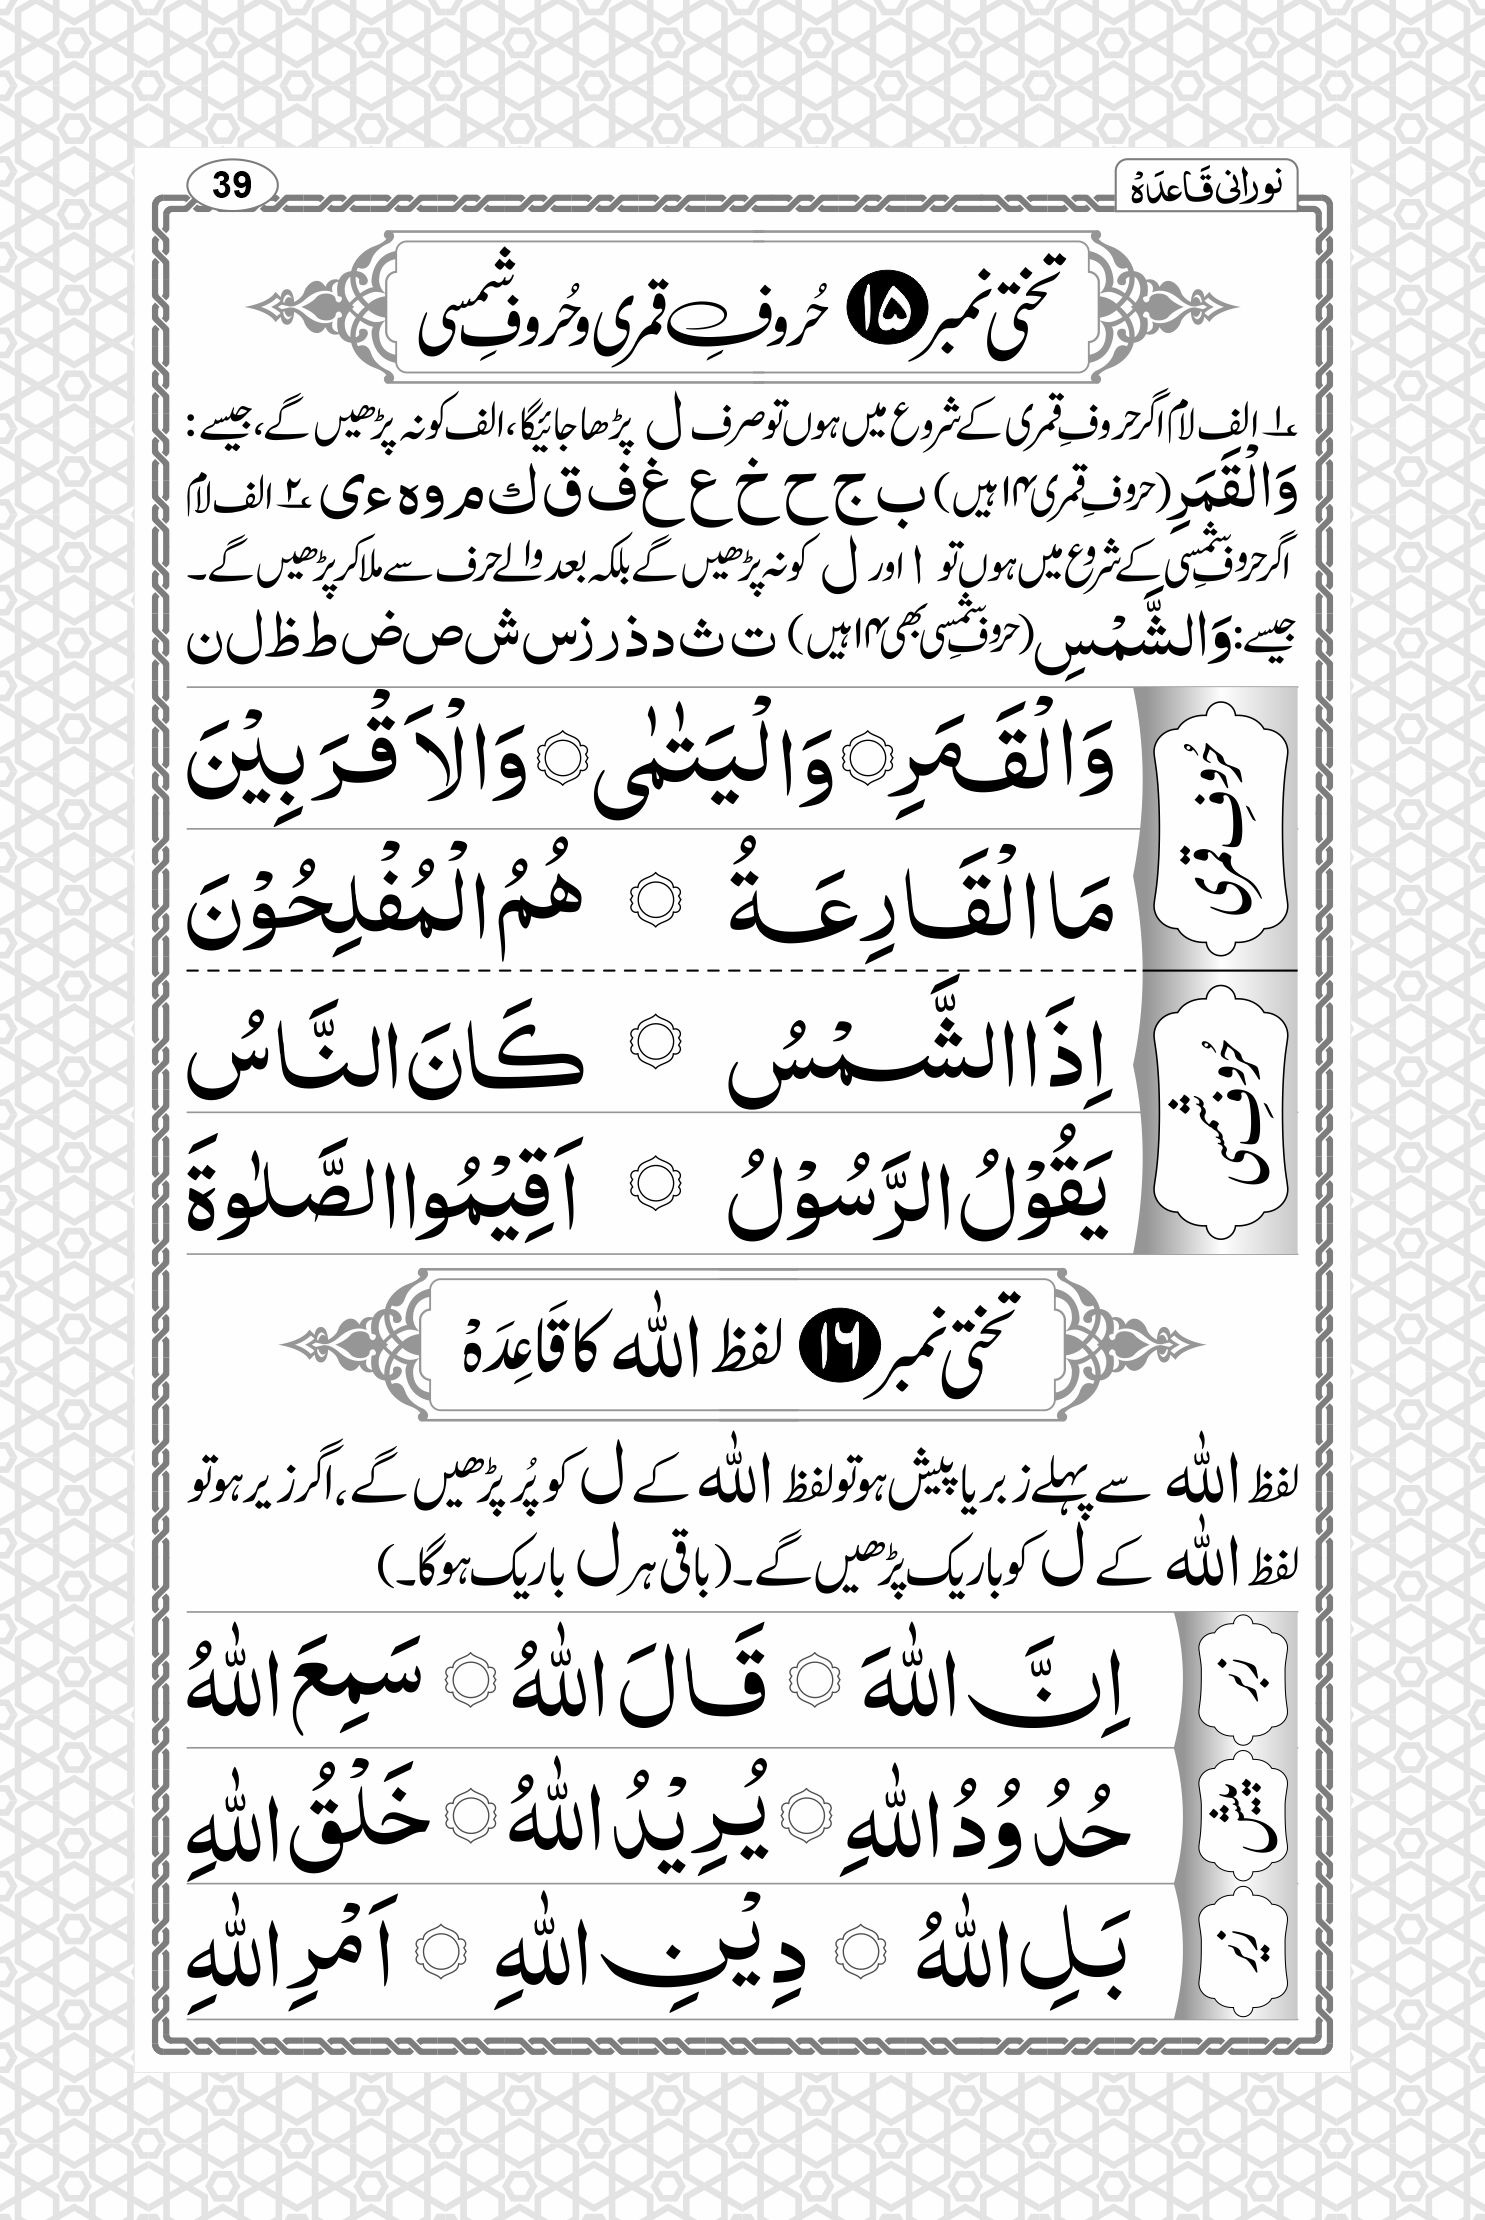 نورانی قَاعدَہْ
39
تختی نمبر ۱۵ حُروفِ قمری و حُروفِ شمسی
؁۱ الف لام اگر حروفِ قمری کے شروع میں ہوں تو صرف ل پڑھا جائیگا، الف کو نہ پڑھیں گے، جیسے:
وَالْقَمَرِ (حروفِ قمری ۱۴ ہیں) ب ج ح خ ع غ ف ق ك م و ہ ء ی ؁۲ الف لام
اگر حروفِ شمسی کے شروع میں ہوں تو ا اور ل کو نہ پڑھیں گے بلکہ بعد والے حرف سے ملا کر پڑھیں گے۔
جیسے: وَالشَّمْسِ (حروفِ شمسی بھی ۱۴ ہیں) ت ث د ذ ر ز س ش ص ض ط ظ ل ن
حُروفِ قمری
وَالْقَمَرِ ۝ وَالْيَتٰمٰى ۝ وَالْاَقْرَبِيْنَ
مَا الْقَارِعَةُ ۝ هُمُ الْمُفْلِحُوْنَ
حُروفِ شمسی
اِذَا الشَّمْسُ ۝ كَانَ النَّاسُ
يَقُوْلُ الرَّسُوْلُ ۝ اَقِيْمُوا الصَّلٰوةَ
تختی نمبر ۱۶ لفظ اللّٰه کا قَاعِدَہْ
لفظ اللّٰه سے پہلے زبر یا پیش ہو تو لفظ اللّٰه کے ل کو پُر پڑھیں گے، اگر زیر ہو تو
لفظ اللّٰه کے ل کو باریک پڑھیں گے۔ (باقی ہر ل باریک ہوگا۔)
زبر
اِنَّ اللّٰهَ ۝ قَالَ اللّٰهُ ۝ سَمِعَ اللّٰهُ
پیش
حُدُوْدُ اللّٰهِ ۝ يُرِيْدُ اللّٰهُ ۝ خَلْقُ اللّٰهِ
زیر
بَلِ اللّٰهُ ۝ دِيْنِ اللّٰهِ ۝ اَمْرِ اللّٰهِ